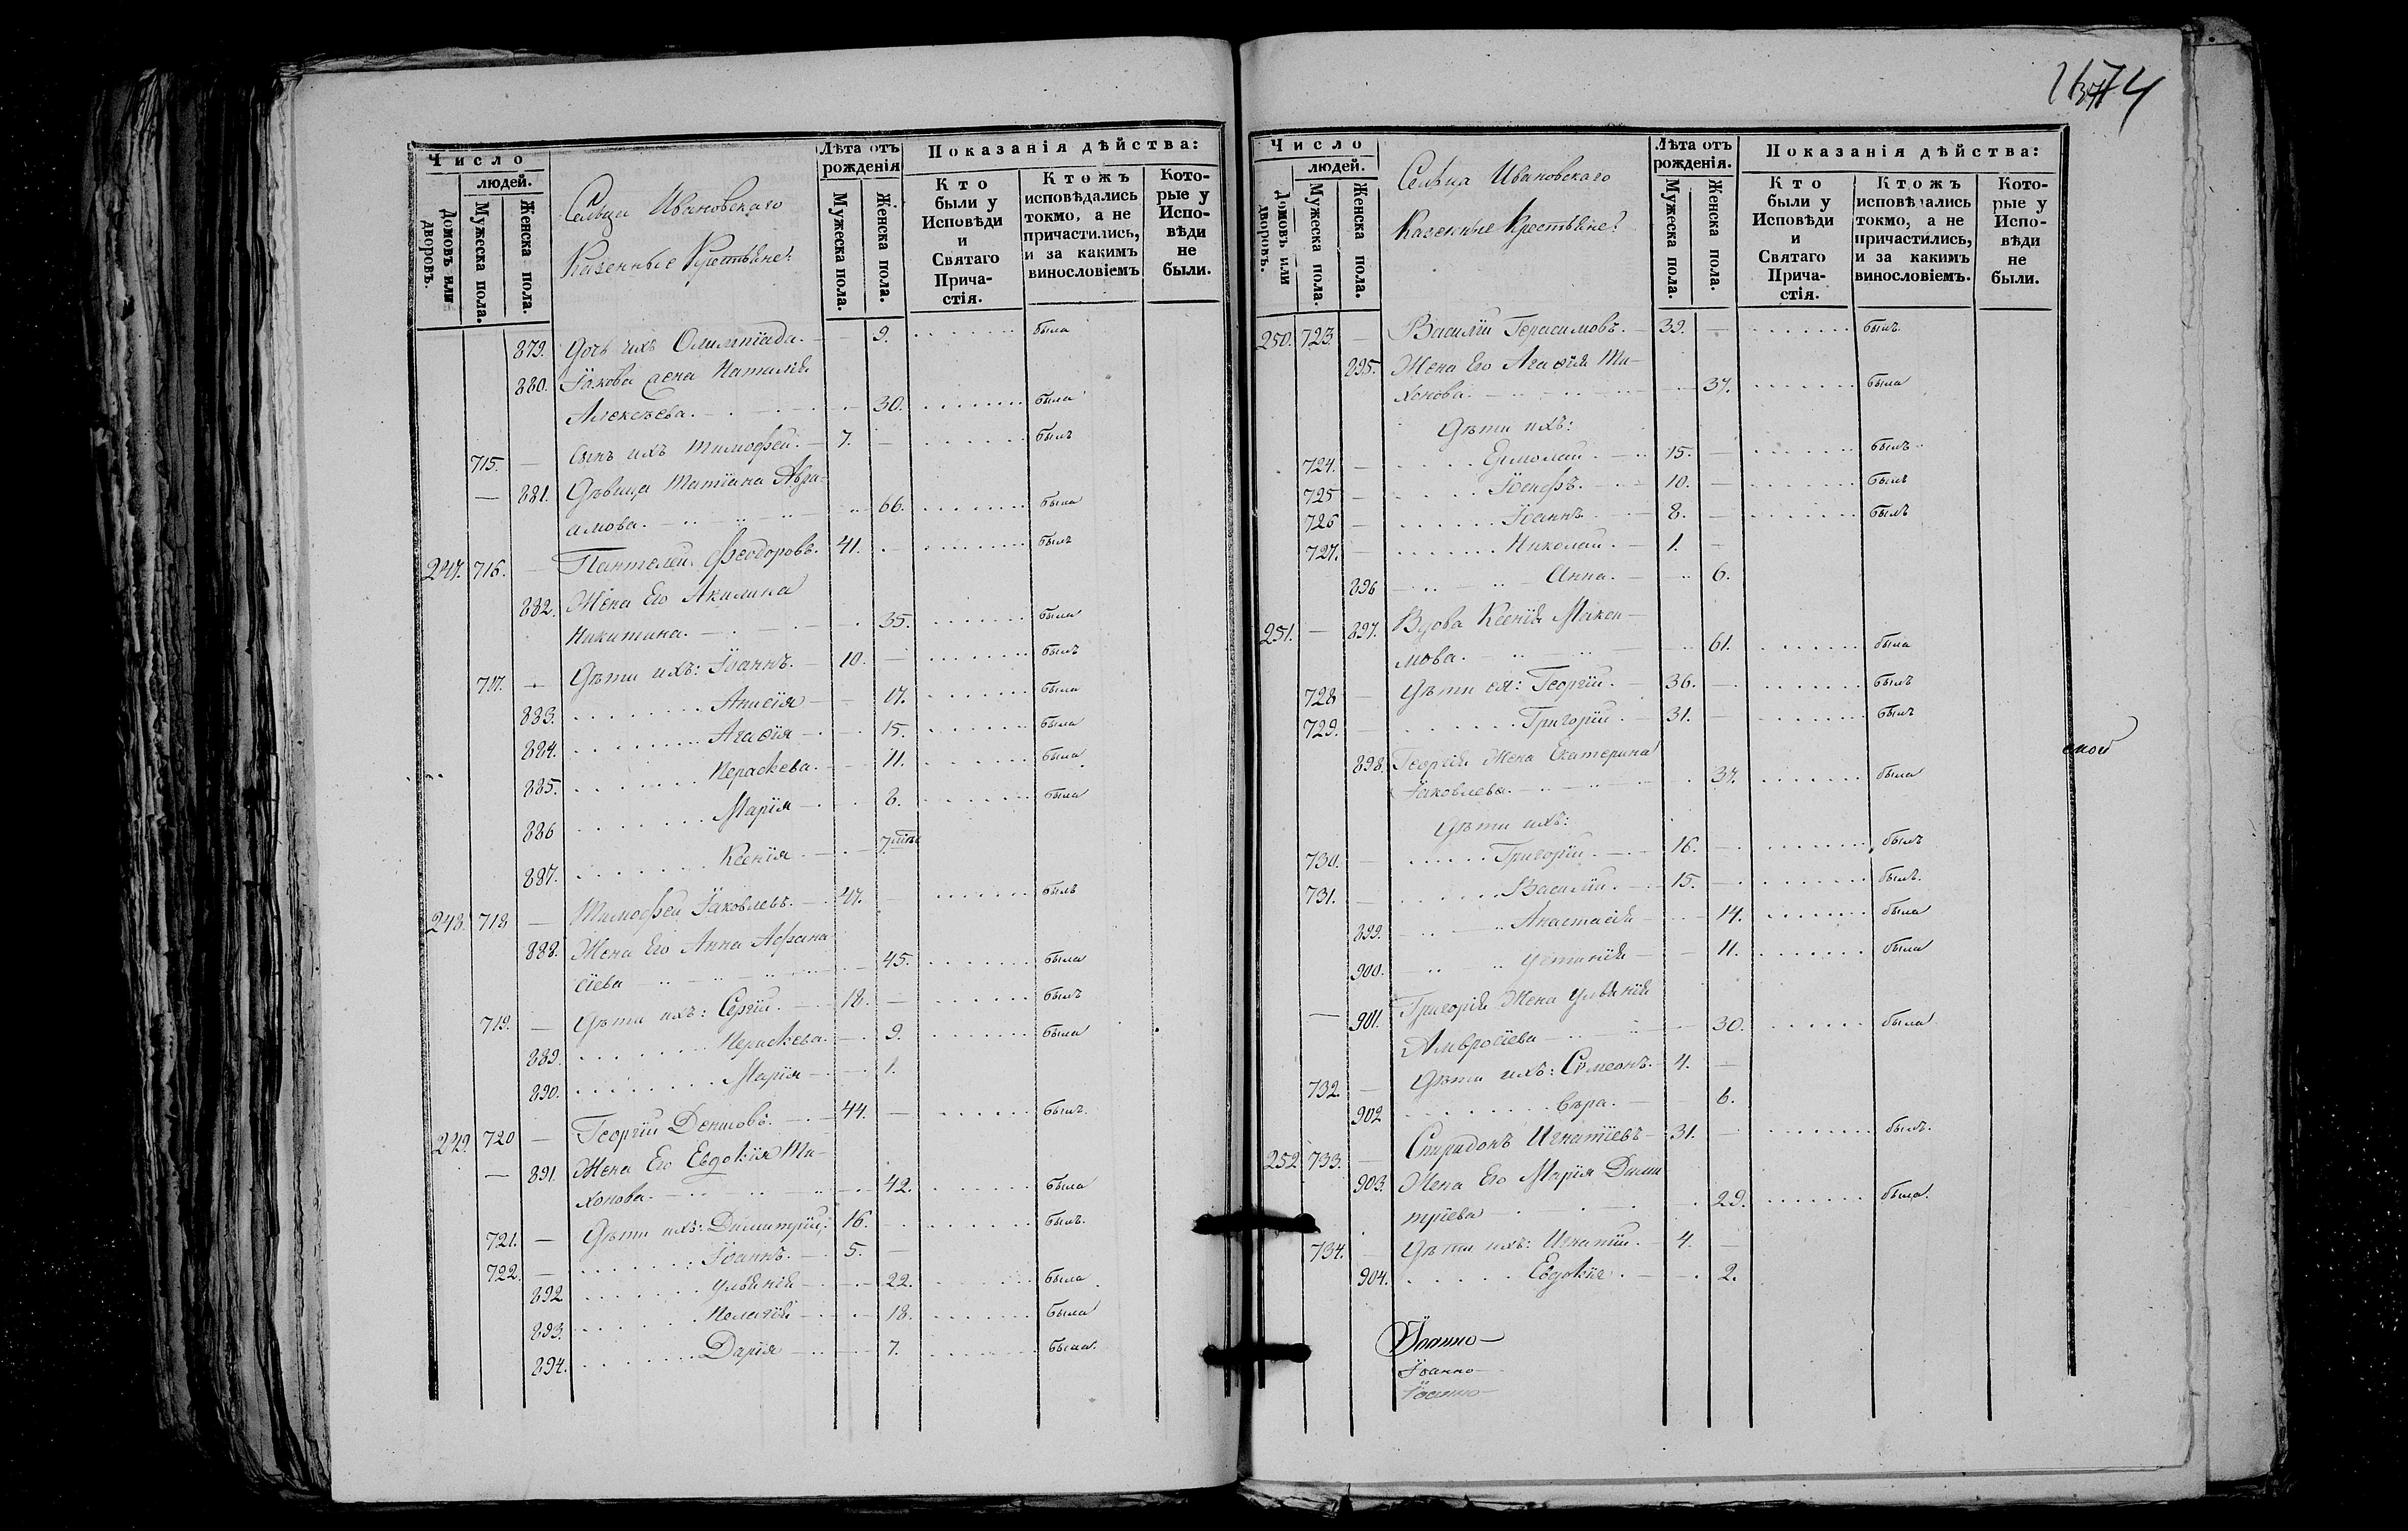 Число
людей.
Домовъ или дворовъ.
Мужеска пола.
Женска пола.
Сельца Ивановскаго
Казенные Крестьяне:
Лѣта отъ рожденія
Мужеска пола.
Женска пола.
Показанія дѣйства:
Кто были у Исповѣди и Святаго Прича-стія.
Ктожъ исповѣдались токмо, а не причастились, и за какимъ винословіемъ
Кото-рые у Испо-вѣди не были.
879. Дочь ихъ Олимпіада. — 9. была
880. Іакова жена Наталія
Алексѣева. — 30. была
715. — Сынъ ихъ Тимофей. — 7. — былъ
— 881. Дѣвица Татіана Авра-
амова. — 66. была
247. 716. — Пантелей Феодоровъ. 41. — былъ
882. Жена Его Акилина
Никитина. — 35. была
717. — Дѣти ихъ: Іоаннъ. — 10. — былъ
883. Анисія — 17. была
884. Агаѳія — 15. была
885. Параскева. — 11. была
886 Марія — 8. была
887. Ксенія — 7
248. 718 — Тимофей Іаковлевъ. — 47. — былъ
888. Жена Его Анна Афана
сіева — 45. была
719. — Дѣти ихъ: Сергій. — 18. — былъ
889. Параскева. — 9. была
890. Марія — 1.
249. 720 — Георгій Денисовъ. — 44. — былъ.
— 891. Жена Его Евдокія Ти-
хонова. — 42. была
721. — Дѣти ихъ: Димитрій. 16. — былъ.
722. — Іоаннъ. — 5. —
892 Ульянія — 22. была
893. Пелагія — 18. была
894. Дарія — 7. была.
1674
Число
людей.
Домовъ или дворовъ.
Мужеска пола.
Женска пола.
Сельца Ивановскаго
Казенные Крестьяне:
Лѣта отъ рожденія.
Мужеска пола.
Женска пола.
Показанія дѣйства:
Кто были у Исповѣди и Святаго Прича-стія.
Ктожъ исповѣдались токмо, а не причастились, и за какимъ винословіемъ.
Кото-рые у Испо-вѣди не были.
250. 723 — Василій Герасимовъ. — 39. — былъ
895. Жена Его Агаѳія Ти-
хонова. — 37. была
Дѣти ихъ:
724. — Ермолай. — 15. — былъ
725 — Іосифъ. — 10. — былъ
726 — Іоаннъ — 8. — былъ
727. — Николай. — 1. —
896 Анна. — 6.
251. — 897. Вдова Ксенія Макси-
мова. — 61. была
728 — Дѣти ея: Георгій. — 36. — былъ
729. — Григорій. — 31. — былъ
898. Георгія Жена Екатерина
Іаковлева. — 37. была
Дѣти ихъ:
730. — Григорій. — 16. — былъ
731. — Василій. — 15. — былъ.
899. Анастасія — 14. была
900. Устинія — 11. была
— 901. Григорія Жена Ульянія
Амвросіева — 30. была
732. — Дѣти ихъ: Симеонъ. — 4. —
902 Вѣра. — 6.
252 733. — Спиридонъ Игнатіевъ — 31. — былъ.
903. Жена Его Марія Дими
тріева — 29. была.
734. — Дѣти ихъ: Игнатій. — 4. —
904. Евдокія. — 2.
Іоанно—
Іоанно—
Іоанно—